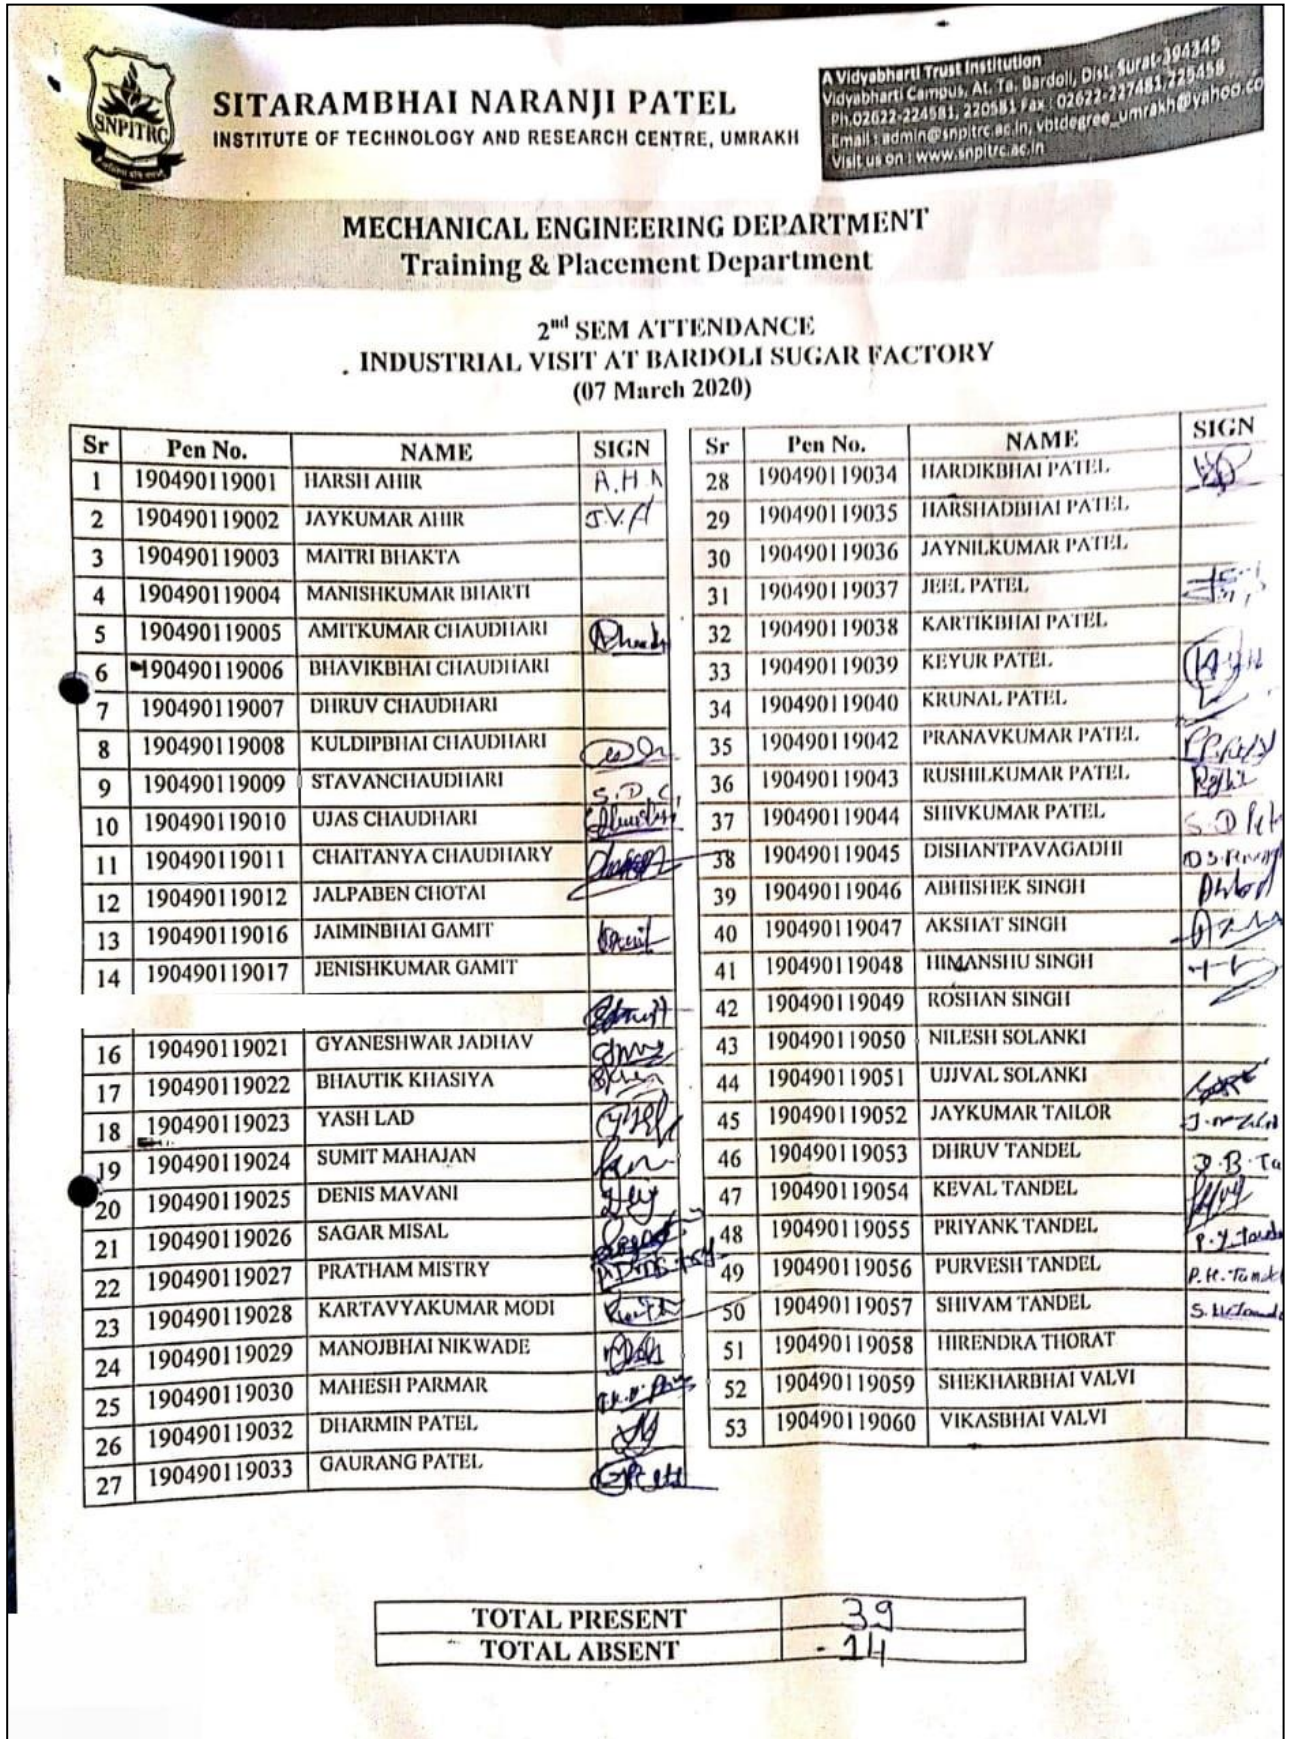 SNPITRC
SITARAMBHAI NARANJI PATEL
INSTITUTE OF TECHNOLOGY AND RESEARCH CENTRE, UMRAKH
A Vidyabharti Trust Institution
Vidyabharti Campus, At. Ta. Bardoli, Dist. Surat-394345
Ph.02622-224581, 220581 Fax : 02622-227481,225458
Email : admin@snpitrc.ac.in, vbtdegree_umrakh@yahoo.co
Visit us on : www.snpitrc.ac.in
MECHANICAL ENGINEERING DEPARTMENT
Training & Placement Department
2nd SEM ATTENDANCE
INDUSTRIAL VISIT AT BARDOLI SUGAR FACTORY
(07 March 2020)
Sr Pen No. NAME SIGN
1 190490119001 HARSH AHIR A.H.A
2 190490119002 JAYKUMAR AHIR J.V.A
3 190490119003 MAITRI BHAKTA
4 190490119004 MANISHKUMAR BHARTI
5 190490119005 AMITKUMAR CHAUDHARI
6 190490119006 BHAVIKBHAI CHAUDHARI
7 190490119007 DHRUV CHAUDHARI
8 190490119008 KULDIPBHAI CHAUDHARI
9 190490119009 STAVANCHAUDHARI S.D.C.
10 190490119010 UJAS CHAUDHARI
11 190490119011 CHAITANYA CHAUDHARY
12 190490119012 JALPABEN CHOTAI
13 190490119016 JAIMINBHAI GAMIT
14 190490119017 JENISHKUMAR GAMIT
16 190490119021 GYANESHWAR JADHAV
17 190490119022 BHAUTIK KHASIYA
18 190490119023 YASH LAD
19 190490119024 SUMIT MAHAJAN
20 190490119025 DENIS MAVANI
21 190490119026 SAGAR MISAL
22 190490119027 PRATHAM MISTRY
23 190490119028 KARTAVYAKUMAR MODI
24 190490119029 MANOJBHAI NIKWADE
25 190490119030 MAHESH PARMAR
26 190490119032 DHARMIN PATEL
27 190490119033 GAURANG PATEL
Sr Pen No. NAME SIGN
28 190490119034 HARDIKBHAI PATEL
29 190490119035 HARSHADBHAI PATEL
30 190490119036 JAYNILKUMAR PATEL
31 190490119037 JEEL PATEL
32 190490119038 KARTIKBHAI PATEL
33 190490119039 KEYUR PATEL
34 190490119040 KRUNAL PATEL
35 190490119042 PRANAVKUMAR PATEL
36 190490119043 RUSHILKUMAR PATEL
37 190490119044 SHIVKUMAR PATEL
38 190490119045 DISHANTPAVAGADHI
39 190490119046 ABHISHEK SINGH
40 190490119047 AKSHAT SINGH
41 190490119048 HIMANSHU SINGH
42 190490119049 ROSHAN SINGH
43 190490119050 NILESH SOLANKI
44 190490119051 UJJVAL SOLANKI
45 190490119052 JAYKUMAR TAILOR
46 190490119053 DHRUV TANDEL D.B.Ta
47 190490119054 KEVAL TANDEL
48 190490119055 PRIYANK TANDEL
49 190490119056 PURVESH TANDEL
50 190490119057 SHIVAM TANDEL
51 190490119058 HIRENDRA THORAT
52 190490119059 SHEKHARBHAI VALVI
53 190490119060 VIKASBHAI VALVI
TOTAL PRESENT 39
TOTAL ABSENT - 14